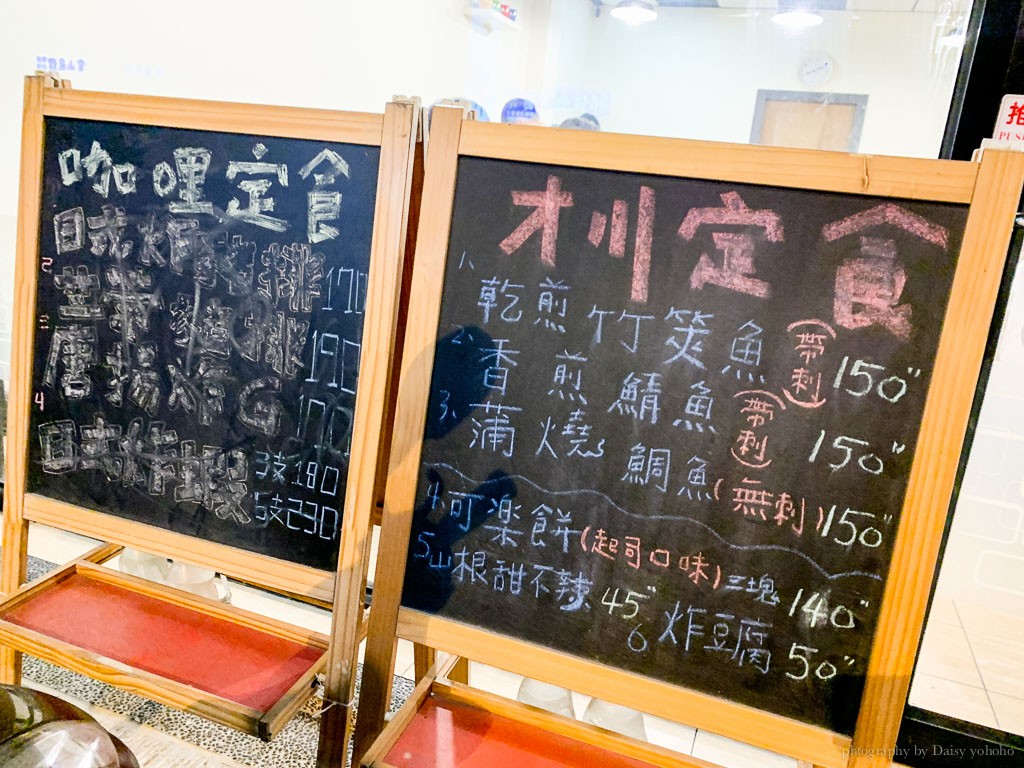 咖哩定食
日式炸豬排 170
2
起司豬排 190
3
唐揚炸雞 170
4
日式炸蝦 3支180
5支230
才川定食
1、乾煎竹筴魚(帶刺) 150"
2、香煎鯖魚(帶刺) 150"
3、蒲燒鯛魚(無刺) 150"
4、可楽餅(起司口味)三塊 140"
5、山根甜不辣 45"
6 炸豆腐 50"
推
PUSH
photography by Daisy yohoho